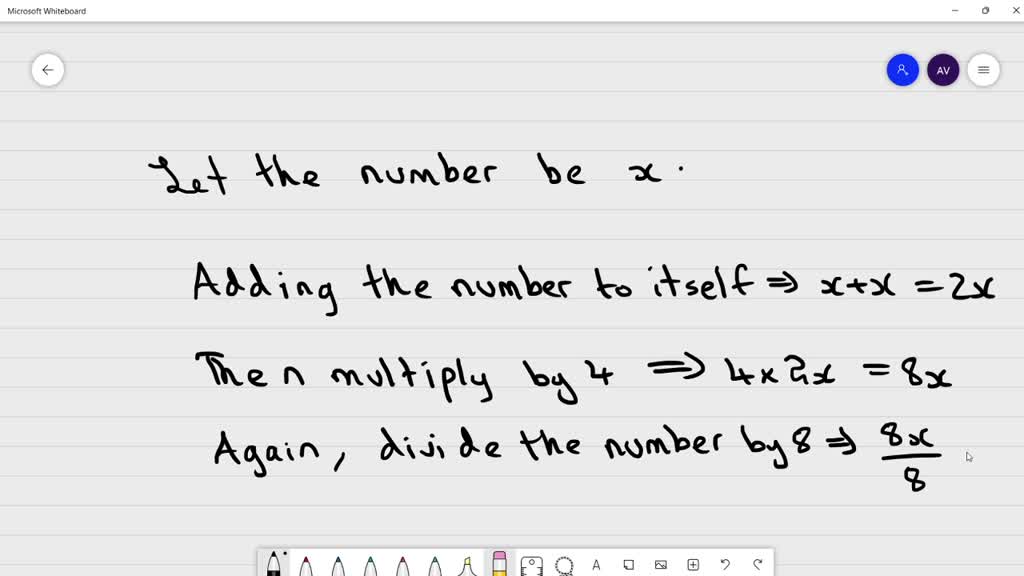 Microsoft Whiteboard
AV
Let the number be x.
Adding the number to itself ⇒ x+x = 2x
Then multiply by 4 ⇒ 4 x 2x = 8x
Again, divide the number by 8 ⇒ 8x/8
A